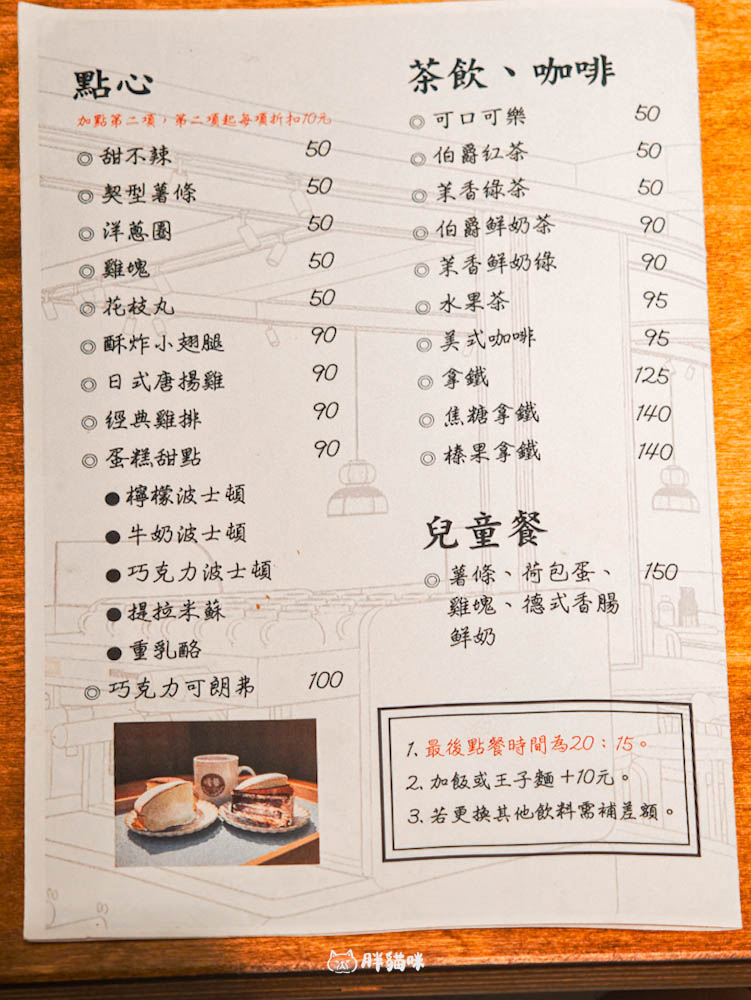 點心
加點第二項，第二項起每項折扣10元
◎甜不辣 50
◎契型薯條 50
◎洋蔥圈 50
◎雞塊 50
◎花枝丸 50
◎酥炸小翅腿 90
◎日式唐揚雞 90
◎經典雞排 90
◎蛋糕甜點 90
●檸檬波士頓
●牛奶波士頓
●巧克力波士頓
●提拉米蘇
●重乳酪
◎巧克力可朗弗 100
茶飲、咖啡
◎可口可樂 50
◎伯爵紅茶 50
◎茉香綠茶 50
◎伯爵鮮奶茶 90
◎茉香鮮奶綠 90
◎水果茶 95
◎美式咖啡 95
◎拿鐵 125
◎焦糖拿鐵 140
◎榛果拿鐵 140
兒童餐
◎薯條、荷包蛋、 150
雞塊、德式香腸
鮮奶
1. 最後點餐時間為20：15。
2. 加飯或王子麵+10元。
3. 若更換其他飲料需補差額。
胖貓咪